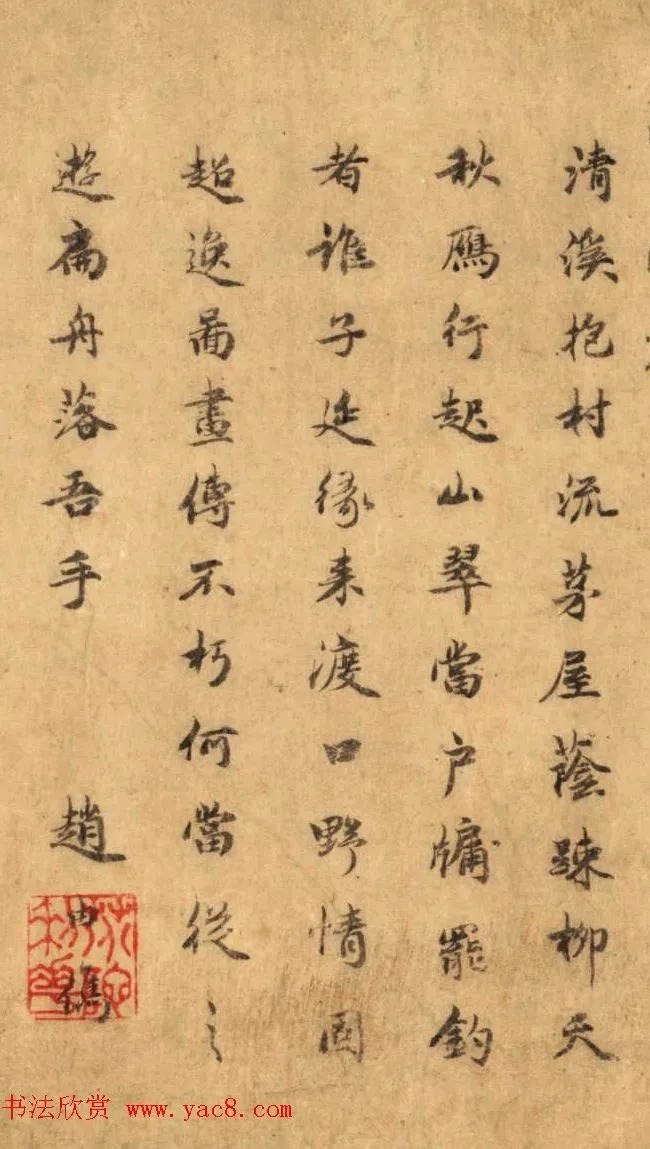 清溪抱村流茅屋蔭踈柳天
秋鴈行起山翠當户牖罷釣
者誰子延緣来渡口野情固
超逸啚畫傳不朽何當從之
遊扁舟落吾手 趙中
书法欣赏 www.yac8.com